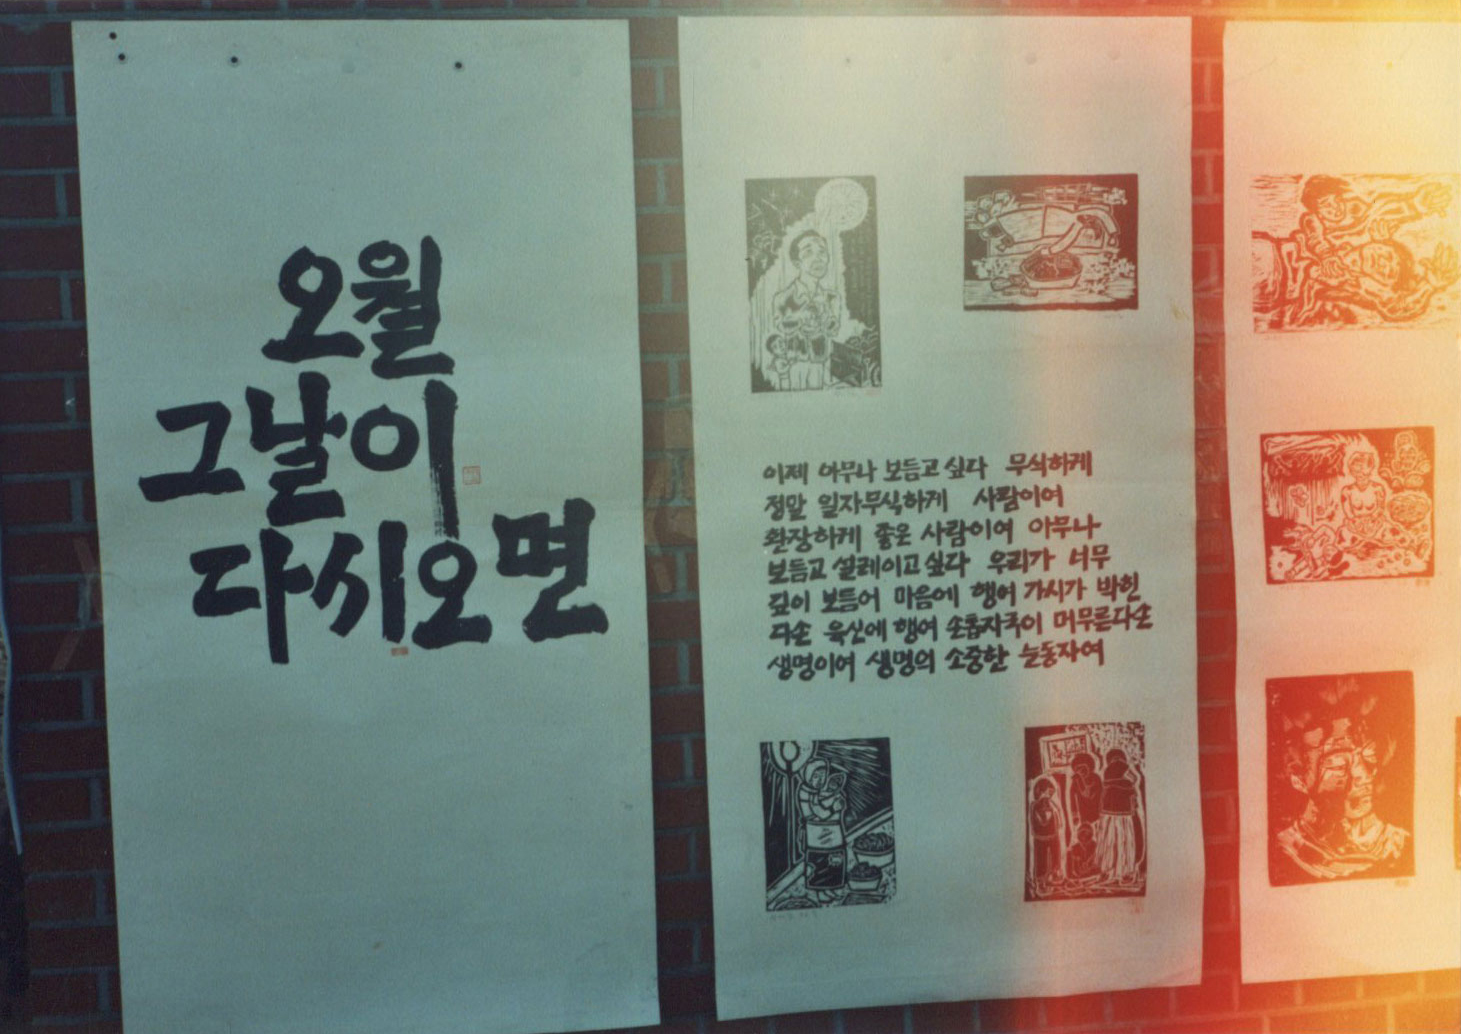 오월
그날이
다시오면
이제 아무나 보듬고 싶다 무식하게
정말 일자무식하게 사람이여
환장하게 좋은 사람이여 아무나
보듬고 설레이고 싶다 우리가 너무
깊이 보듬어 마음에 행여 가시가 박힌
다손 육신에 행여 손톱자국이 머무른다손
생명이여 생명의 소중한 눈동자여